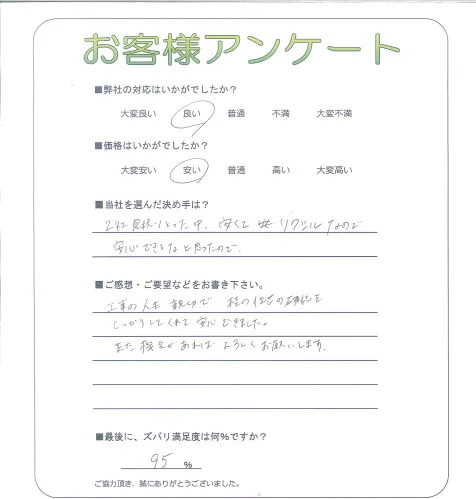 お客様アンケート
■弊社の対応はいかがでしたか？
大変良い 良い 普通 不満 大変不満
■価格はいかがでしたか？
大変安い 安い 普通 高い 大変高い
■当社を選んだ決め手は？
2社見積りとった中、安くて リクシルなので
安心できるなと思ったので、
■ご感想・ご要望などをお書き下さい。
工事の人も 親切で の確認を
しっかりしてくれて 安心できました。
また機会があれば よろしくお願いします。
■最後に、ズバリ満足度は何％ですか？
95 ％
ご協力頂き、誠にありがとうございました。